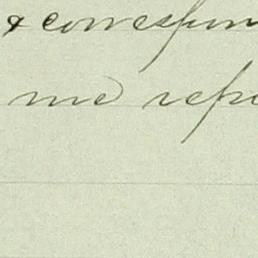 & correspon
me repo